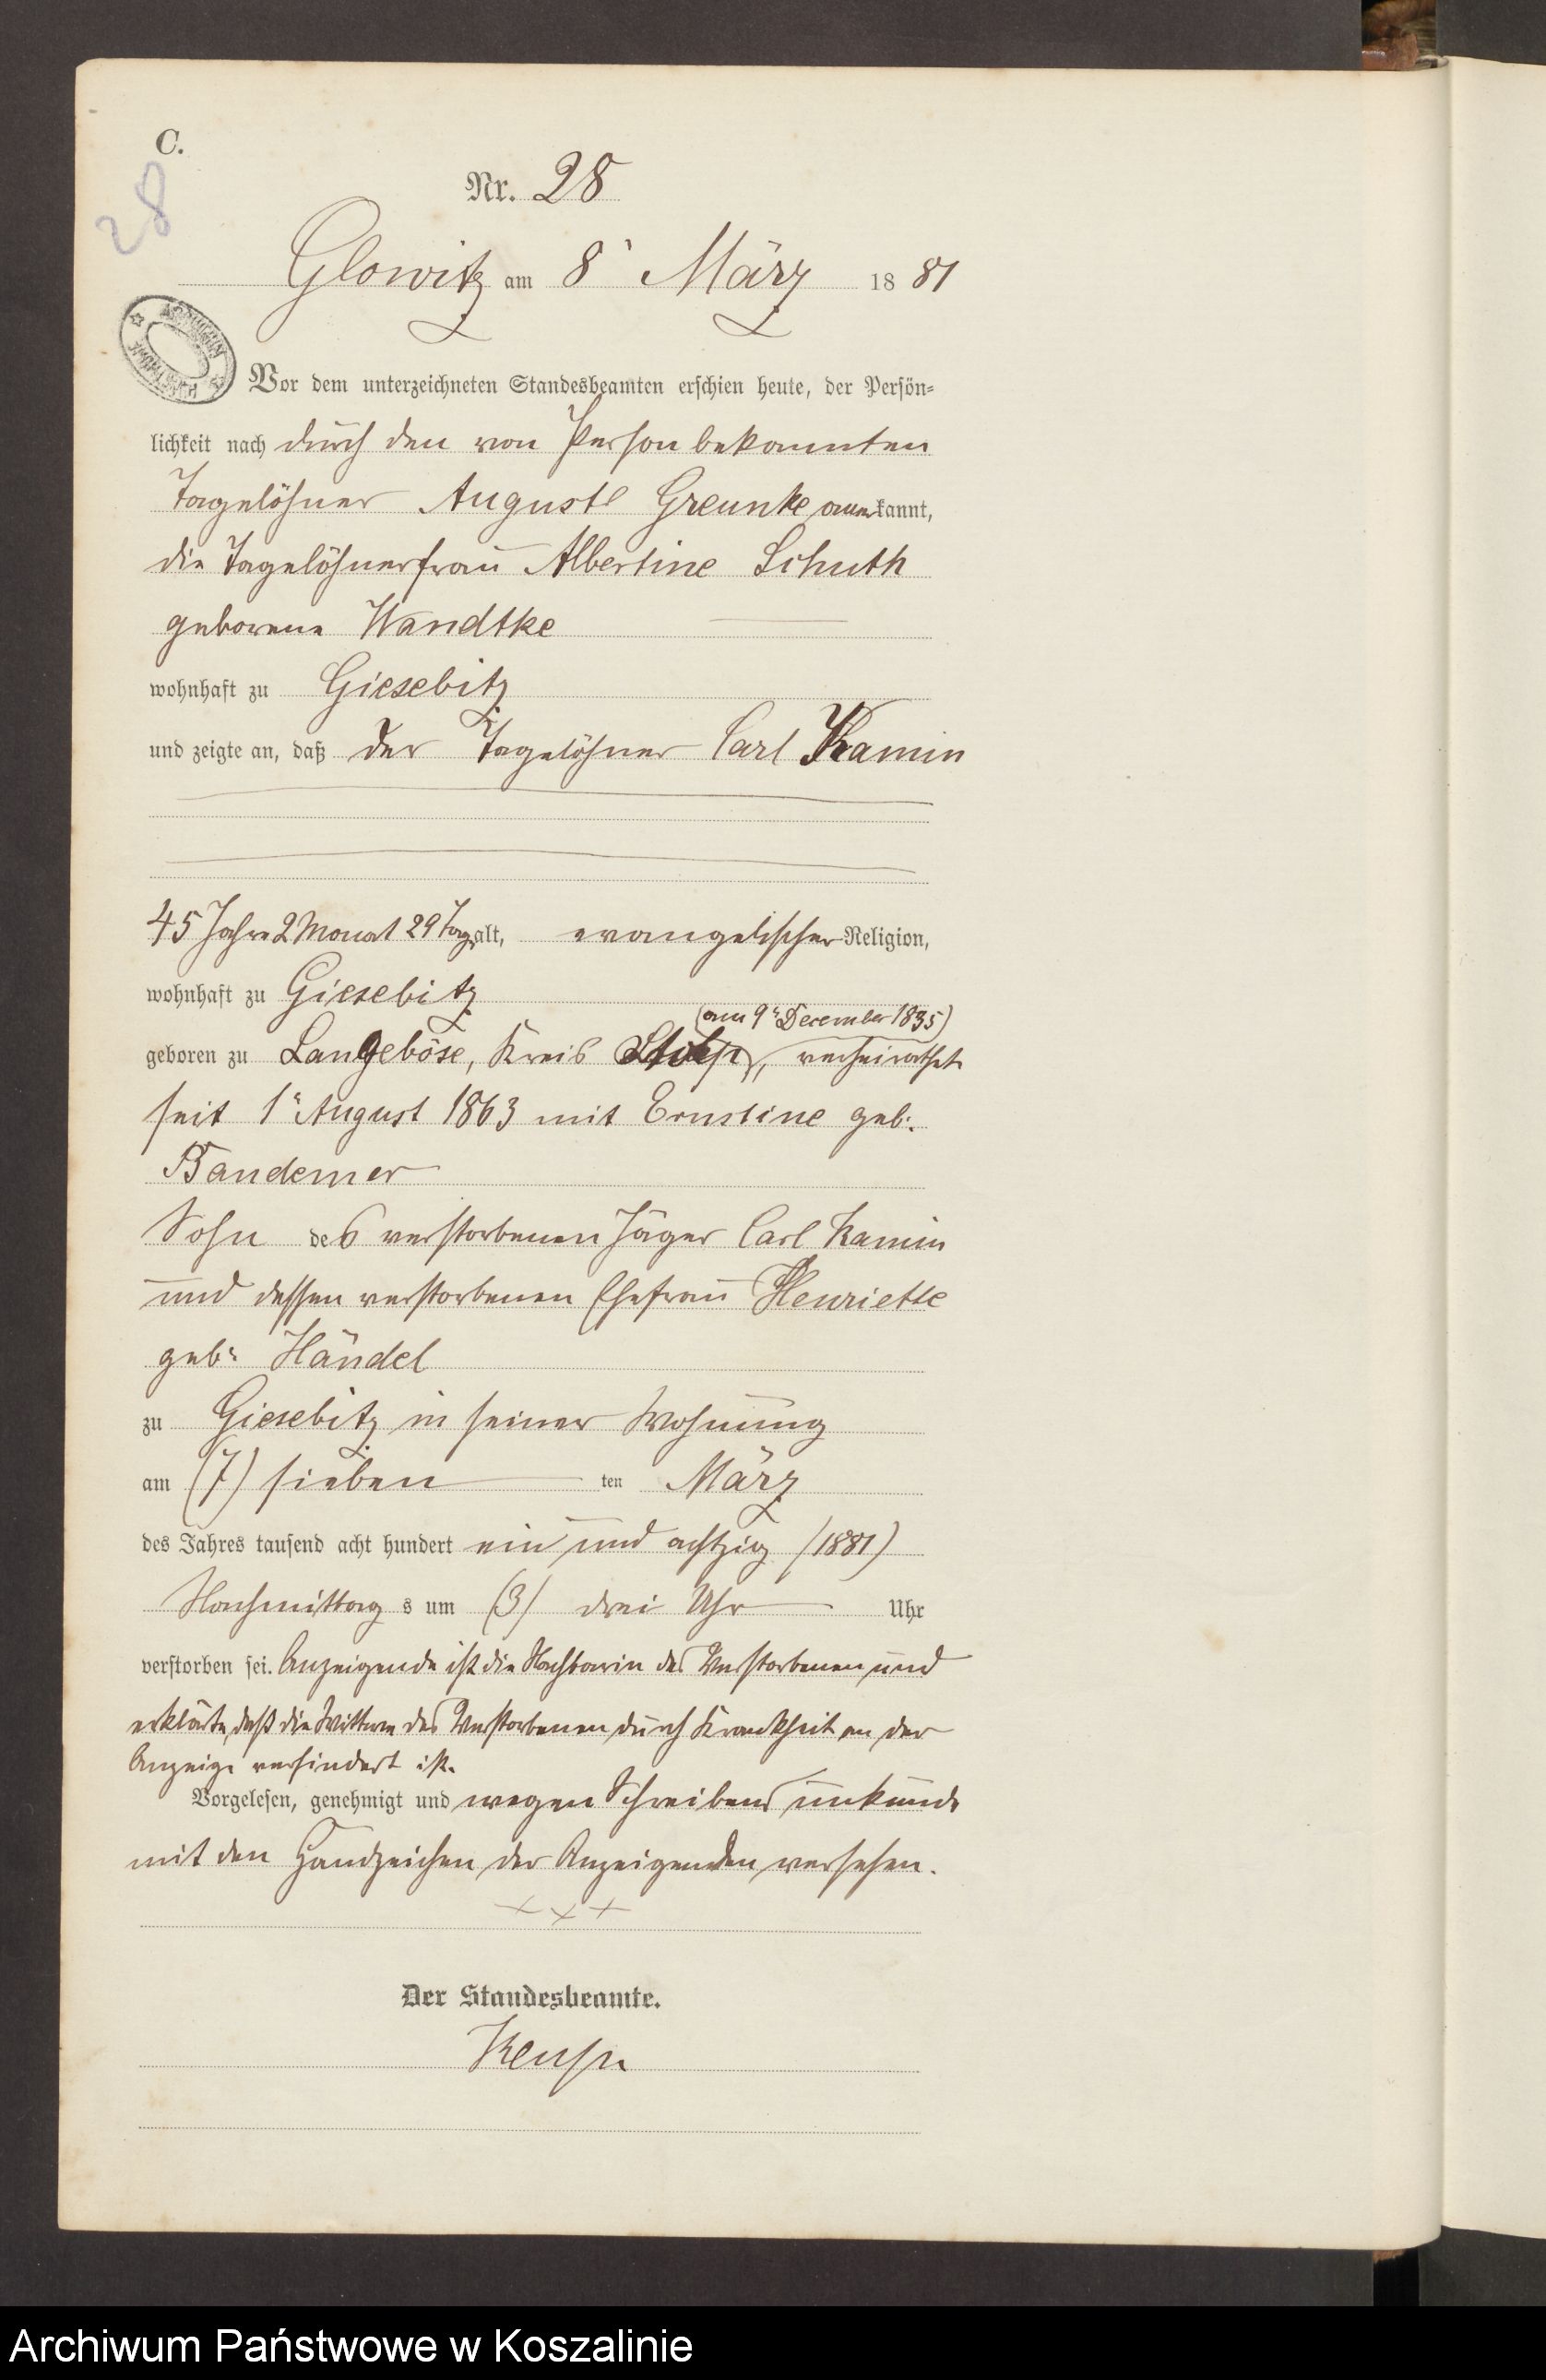 C.
28
Nr. 28
Glowitz am 8ᵗ März 1881
Vor dem unterzeichneten Standesbeamten erschien heute, der Persön=
lichkeit nach durch den von Person bekannten
Tagelöhner August Greunke anerkannt,
die Tagelöhnerfrau Albertine Schuth
geborene Wandtke
wohnhaft zu Giesebitz
und zeigte an, daß der Tagelöhner Carl Kamin
45 Jahre 2 Monat 29 Tag alt, evangelischer Religion,
wohnhaft zu Giesebitz
(am 9ᵗ December 1835)
geboren zu Langeböse, Kreis Stolp, verheirathet
seit 1ᵗ August 1863 mit Ernstine geb.
Bandemer
Sohn des verstorbenen Jäger Carl Kamin
und dessen verstorbenen Ehefrau Henriette
geb. Händel
zu Giesebitz in seiner Wohnung
am (7) sieben ten März
des Jahres tausend acht hundert ein und achtzig (1881)
Nachmittag s um (3) drei Uhr Uhr
verstorben sei. Anzeigende ist die Nachbarin des Verstorbenen und
erklärte, daß die Wittwe des Verstorbenen durch Krankheit an der
Anzeige verhindert ist.
Vorgelesen, genehmigt und wegen Schreibens unkunde
mit den Handzeichen der Anzeigenden versehen.
+ + +
Der Standesbeamte.
Archiwum Państwowe w Koszalinie